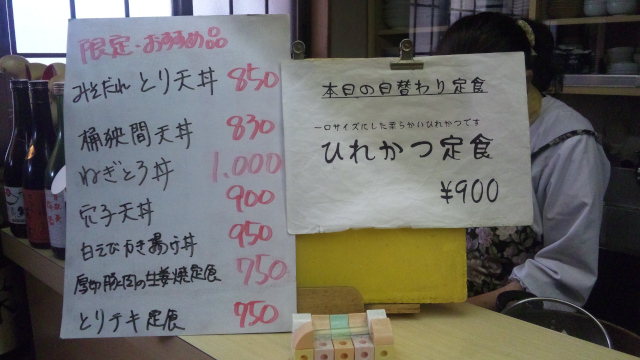 限定・おすすめ品
みそだれ とり天丼 850
桶狭間天丼 830
ねぎとろ丼 1,000
穴子天丼 900
白えびかき揚げ丼 950
厚切豚肉の生姜焼定食 750
とりテキ定食 750
本日の日替わり定食
一口サイズにした柔らかいひれかつです
ひれかつ定食
¥900